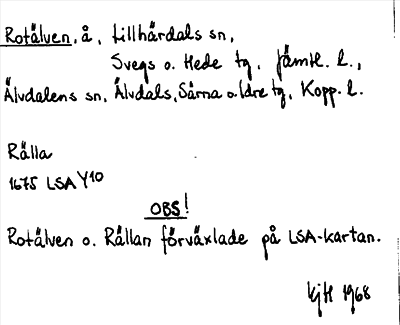 Rotälven, å, Lillhärdals sn,
Svegs o. Hede tg, Jämtl. l.,
Älvdalens sn, Älvdals, Särna o. Idre tg, Kopp. l.
Rålla
1675 LSA Y10
OBS!
Rotälven o. Rållan förväxlade på LSA-kartan.
kjH 1968